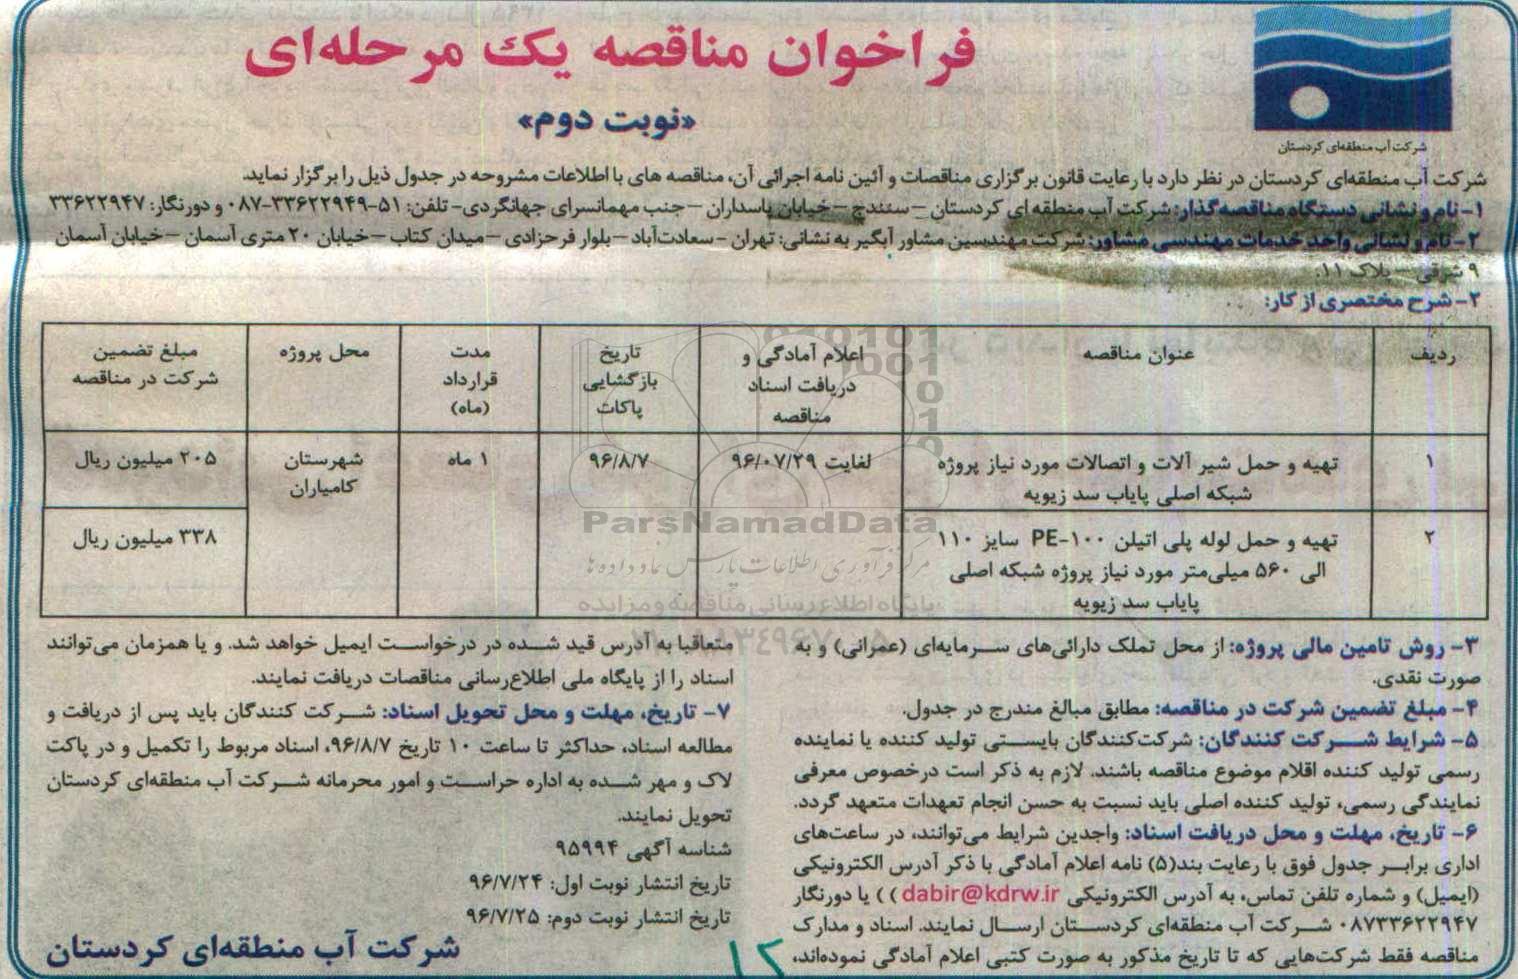 فراخوان مناقصه یک مرحله‌ای
«نوبت دوم»
شرکت آب منطقه‌ای کردستان
شرکت آب منطقه‌ای کردستان در نظر دارد با رعایت قانون برگزاری مناقصات و آئین نامه اجرائی آن، مناقصه های با اطلاعات مشروحه در جدول ذیل را برگزار نماید.
۱- نام و نشانی دستگاه مناقصه‌گذار: شرکت آب منطقه ای کردستان – سنندج – خیابان پاسداران – جنب مهمانسرای جهانگردی- تلفن: ۵۱-۳۳۶۲۲۹۴۹-۰۸۷ و دورنگار: ۳۳۶۲۲۹۴۷
۲- نام و نشانی واحد خدمات مهندسی مشاور: شرکت مهندسین مشاور آبگیر به نشانی: تهران - سعادت‌آباد – بلوار فرحزادی – میدان کتاب – خیابان ۲۰ متری آسمان – خیابان آسمان
۹ شرقی – پلاک ۱۱.
۲- شرح مختصری از کار:
ردیف | عنوان مناقصه | اعلام آمادگی و دریافت اسناد مناقصه | تاریخ بازگشایی پاکات | مدت قرارداد (ماه) | محل پروژه | مبلغ تضمین شرکت در مناقصه
۱ | تهیه و حمل شیر آلات و اتصالات مورد نیاز پروژه شبکه اصلی پایاب سد زیویه | لغایت ۹۶/۰۷/۲۹ | ۹۶/۸/۷ | ۱ ماه | شهرستان کامیاران | ۲۰۵ میلیون ریال
۲ | تهیه و حمل لوله پلی اتیلن PE-۱۰۰ سایز ۱۱۰ الی ۵۶۰ میلی‌متر مورد نیاز پروژه شبکه اصلی پایاب سد زیویه | ۳۳۸ میلیون ریال
ParsNamadData
مرکز فرآوری اطلاعات پارس نماد داده ها
پایگاه اطلاع رسانی مناقصه و مزایده
۳- روش تامین مالی پروژه: از محل تملک دارائی‌های سرمایه‌ای (عمرانی) و به
صورت نقدی.
۴- مبلغ تضمین شرکت در مناقصه: مطابق مبالغ مندرج در جدول.
۵- شرایط شرکت کنندگان: شرکت‌کنندگان بایستی تولید کننده یا نماینده
رسمی تولید کننده اقلام موضوع مناقصه باشند. لازم به ذکر است درخصوص معرفی
نمایندگی رسمی، تولید کننده اصلی باید نسبت به حسن انجام تعهدات متعهد گردد.
۶- تاریخ، مهلت و محل دریافت اسناد: واجدین شرایط می‌توانند، در ساعت‌های
اداری برابر جدول فوق با رعایت بند(۵) نامه اعلام آمادگی با ذکر آدرس الکترونیکی
(ایمیل) و شماره تلفن تماس، به آدرس الکترونیکی dabir@kdrw.ir )) یا دورنگار
۰۸۷۳۳۶۲۲۹۴۷ شرکت آب منطقه‌ای کردستان ارسال نمایند. اسناد و مدارک
مناقصه فقط شرکت‌هایی که تا تاریخ مذکور به صورت کتبی اعلام آمادگی نموده‌اند،
متعاقبا به آدرس قید شده در درخواست ایمیل خواهد شد. و یا همزمان می‌توانند
اسناد را از پایگاه ملی اطلاع‌رسانی مناقصات دریافت نمایند.
۷- تاریخ، مهلت و محل تحویل اسناد: شرکت کنندگان باید پس از دریافت و
مطالعه اسناد، حداکثر تا ساعت ۱۰ تاریخ ۹۶/۸/۷، اسناد مربوط را تکمیل و در پاکت
لاک و مهر شده به اداره حراست و امور محرمانه شرکت آب منطقه‌ای کردستان
تحویل نمایند.
شناسه آگهی ۹۵۹۹۴
تاریخ انتشار نوبت اول: ۹۶/۷/۲۴
تاریخ انتشار نوبت دوم: ۹۶/۷/۲۵
شرکت آب منطقه‌ای کردستان
۱۲